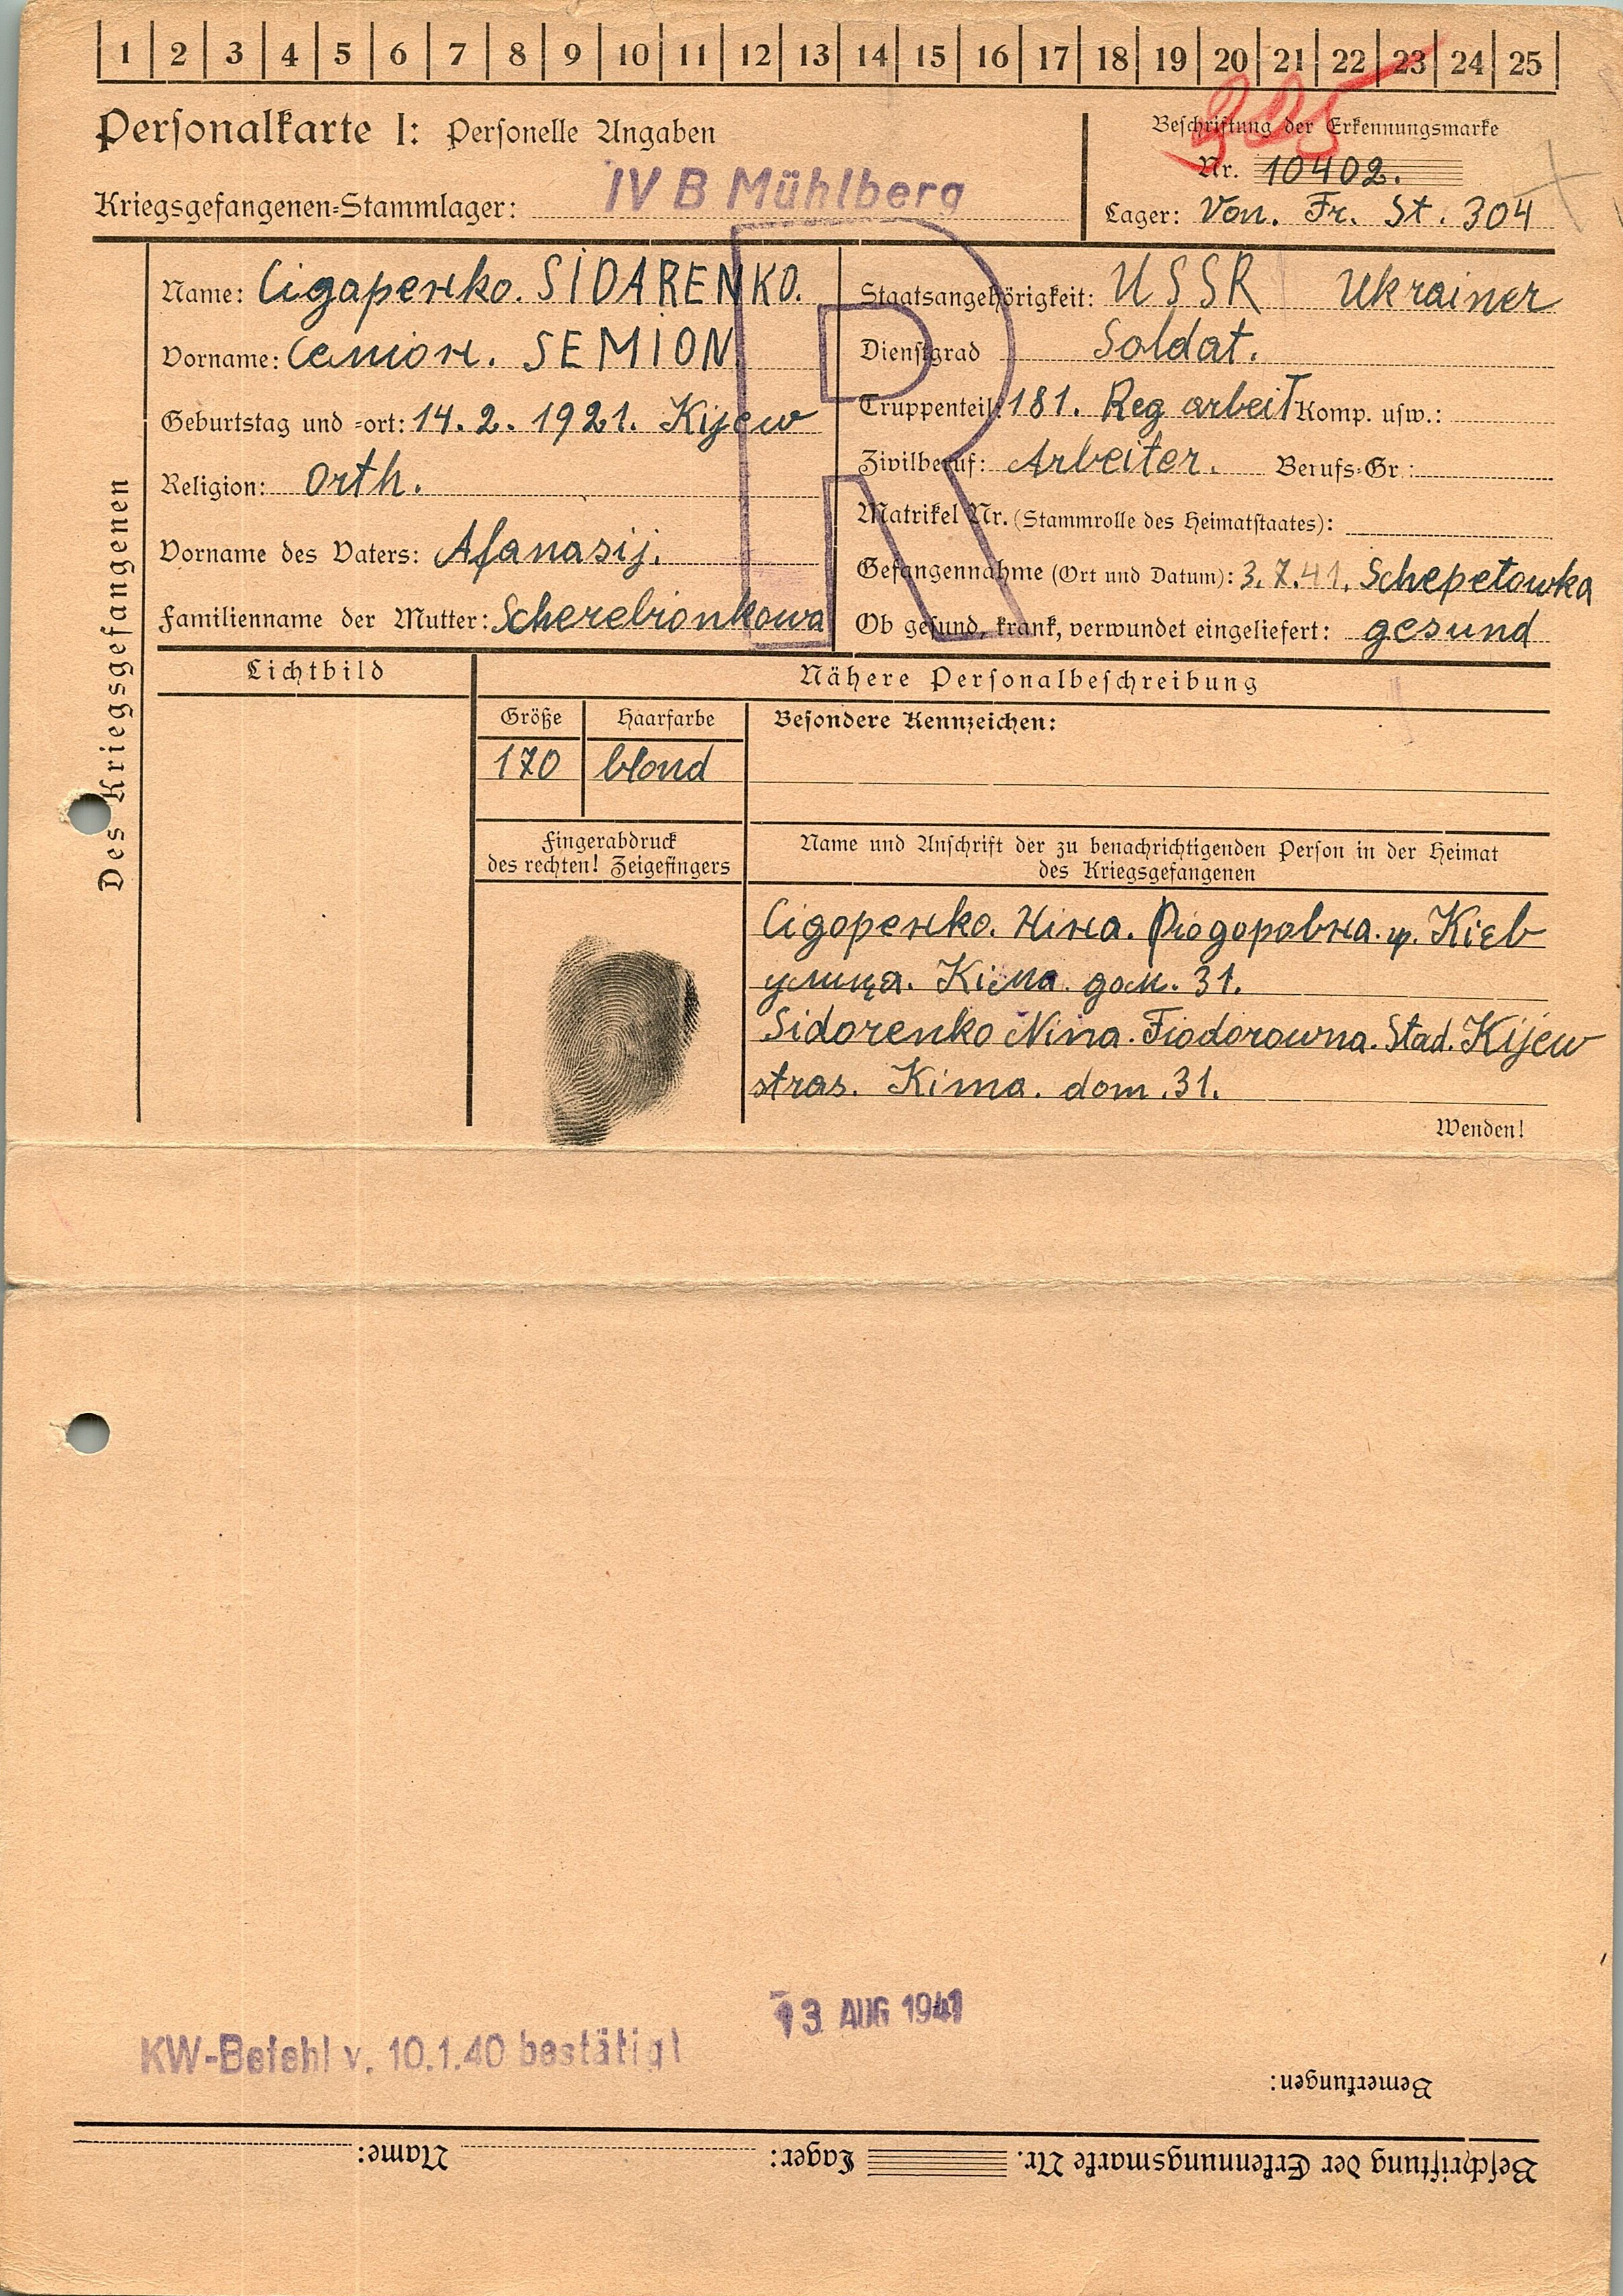 1 2 3 4 5 6 7 8 9 10 11 12 13 14 15 16 17 18 19 20 21 22 23 24 25
Personalkarte I: Personelle Angaben
Kriegsgefangenen-Stammlager: IV B Mühlberg
Beschriftung der Erkennungsmarke
Nr. 10402.
Lager: Von. Fr. St. 304
R
Des Kriegsgefangenen
Name: Сидаренко. SIDARENKO.
Vorname: Семион. SEMION.
Geburtstag und -ort: 14. 2. 1921. Kijew
Religion: Orth.
Vorname des Vaters: Afanasij.
Familienname der Mutter: Scherebionkowa
Staatsangehörigkeit: USSR Ukrainer
Dienstgrad Soldat.
Truppenteil: 181. Reg arbeit Komp. usw.:
Zivilberuf: Arbeiter. Berufs-Gr.:
Matrikel Nr. (Stammrolle des Heimatstaates):
Gefangennahme (Ort und Datum): 3.7.41. Schepetowka
Ob gesund, krank, verwundet eingeliefert: gesund
Lichtbild
Nähere Personalbeschreibung
Größe Haarfarbe Besondere Kennzeichen:
170 blond
Fingerabdruck
des rechten! Zeigefingers
Name und Anschrift der zu benachrichtigenden Person in der Heimat
des Kriegsgefangenen
Сидоренко. Нина. Фиодоровна. гр. Кіев
улица. Кіма. дом. 31.
Sidorenko Nina. Fiodorowna. Stad. Kijew
stras. Kima. dom. 31.
Wenden!
13 AUG 1941
KW-Befehl v. 10.1.40 bestätigt
Bemerkungen:
Beschriftung der Erkennungsmarke Nr. Lager: Name: